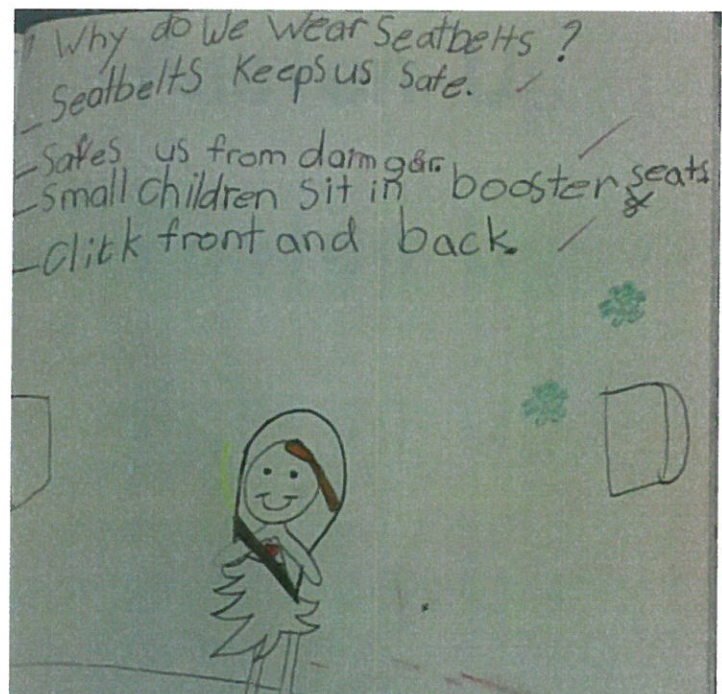 Why do We Wear Seatbelts ?
- Seatbelts Keeps us Safe.
- Safes us from damgar.
- Small children sit in booster seats
- Click front and back.